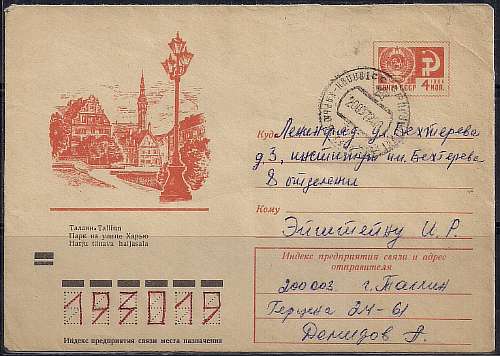 ПОЧТА СССР
4 КОП.
Таллин. Tallinn
Парк на улице Харью
Harju tänava haljasala
Куда Ленинград ул. Бехтерева
д. 3, институт им. Бехтерева
8 отделение
Кому
Эйгштейну И. Р.
Индекс предприятия связи и адрес
отправителя
200003 г. Таллин
Герцена 24-61
Демидов А.
193019
Индекс предприятия связи места назначения